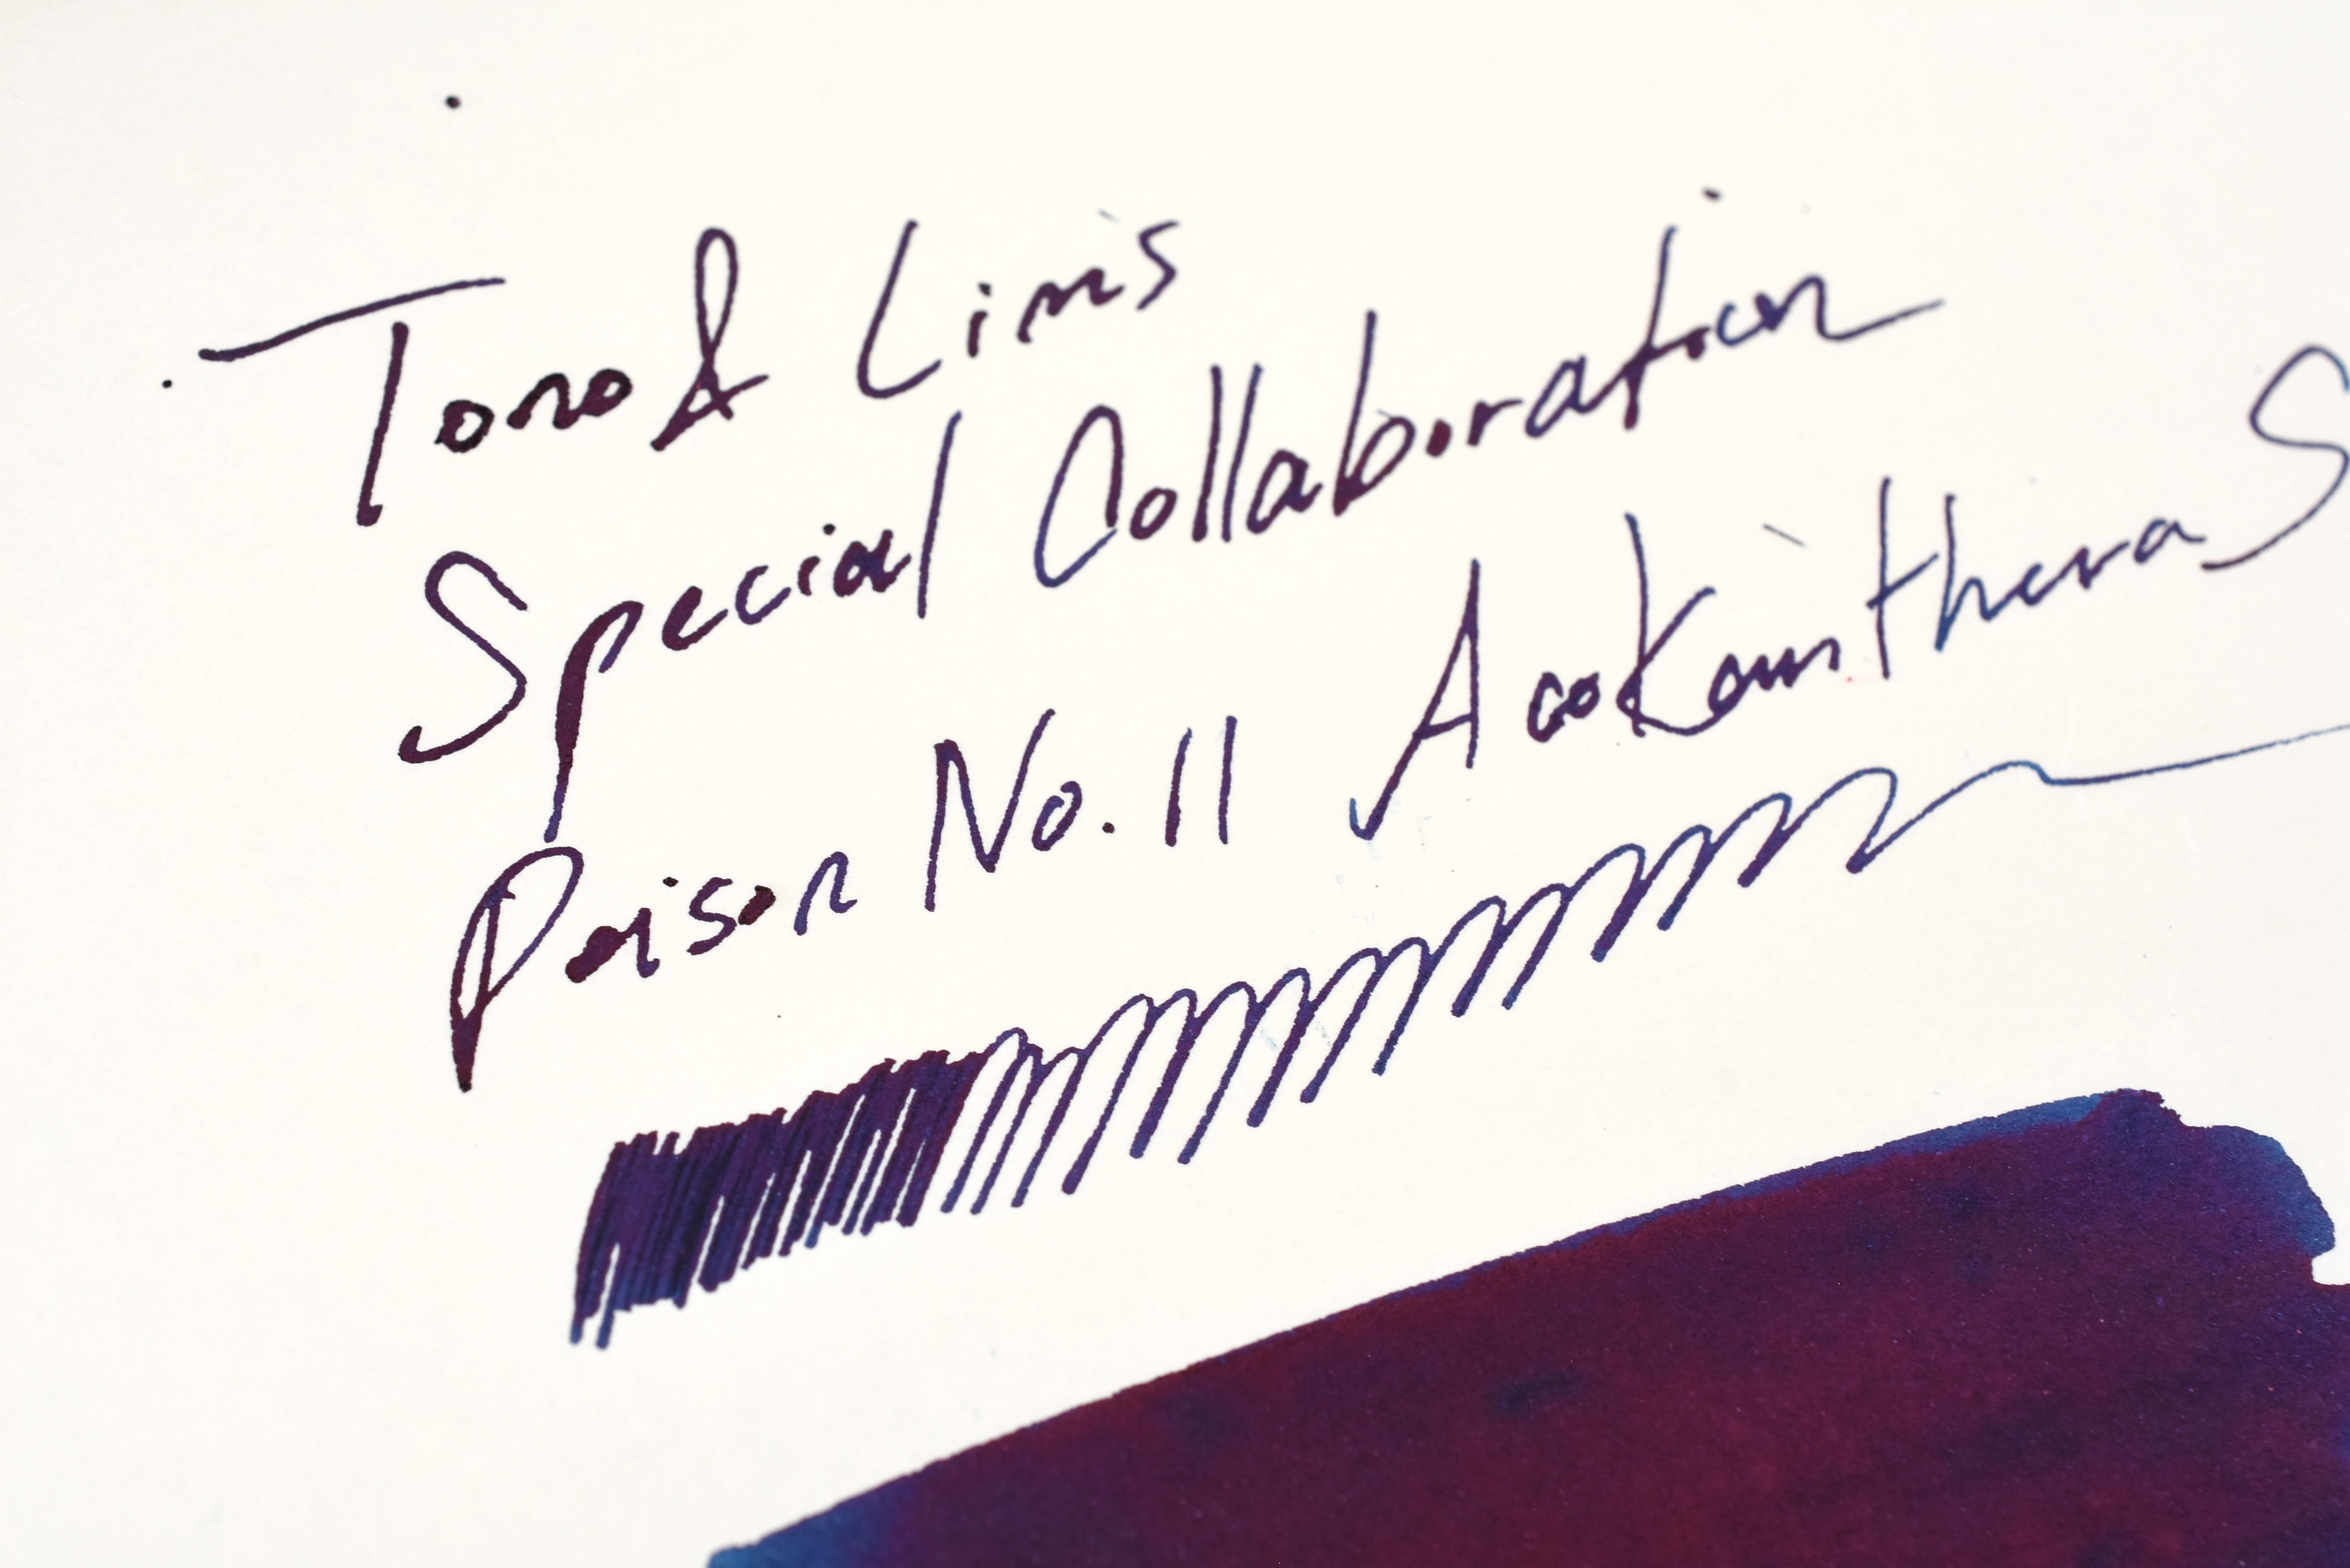 Tono & Lims
Special Collaboration
Poison No. 11 Acokanthera S